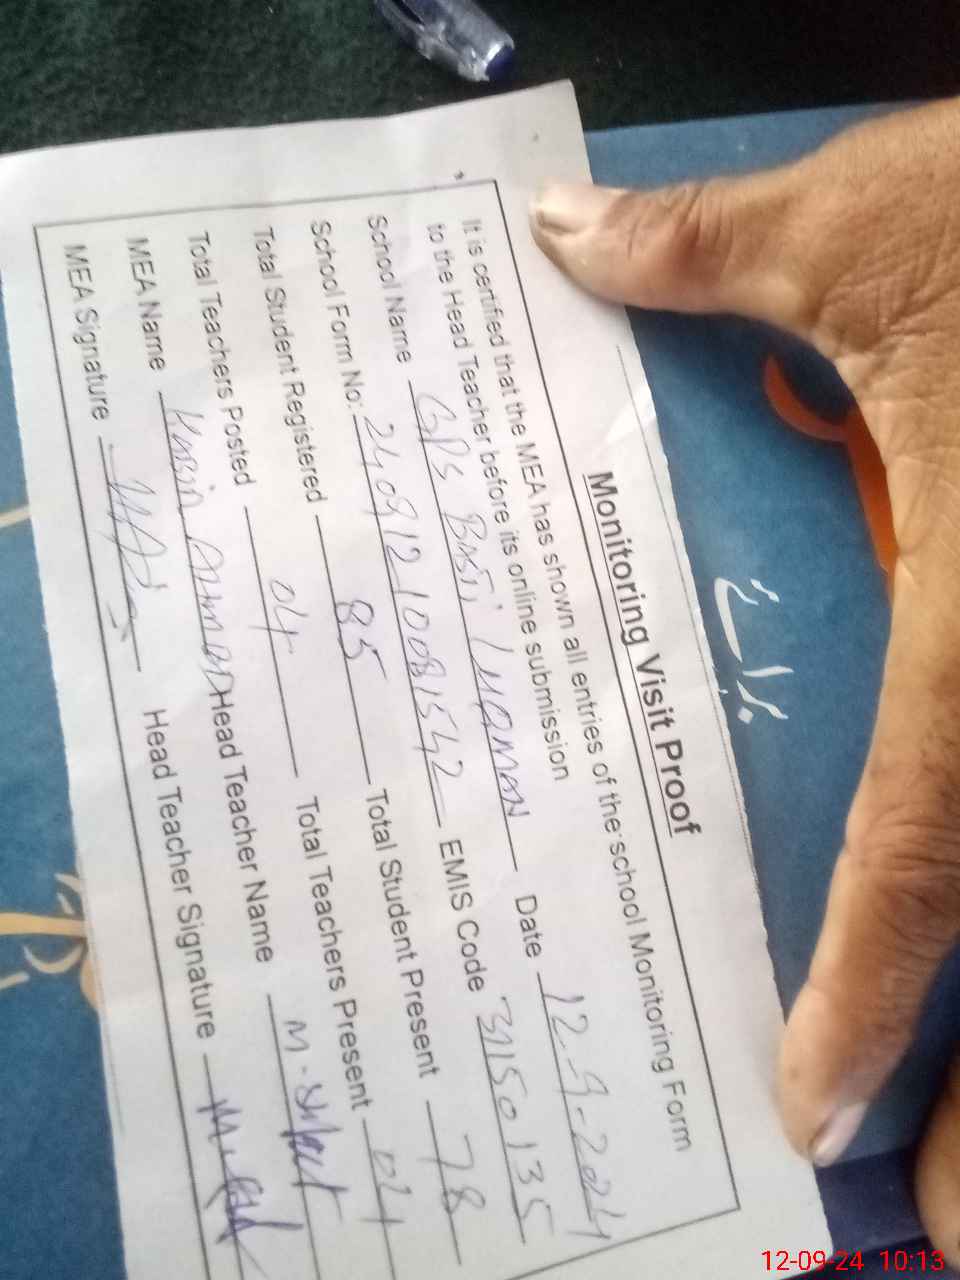 Monitoring Visit Proof
It is certified that the MEA has shown all entries of the school Monitoring Form
to the Head Teacher before its online submission
School Name GPS Basti LUQMAN Date 12-9-2024
School Form No: 24091210081542 EMIS Code 31150135
Total Student Registered 85 Total Student Present 78
Total Teachers Posted 04 Total Teachers Present 04
MEA Name AHMAD Head Teacher Name M.
MEA Signature Head Teacher Signature
12-09-24 10:13